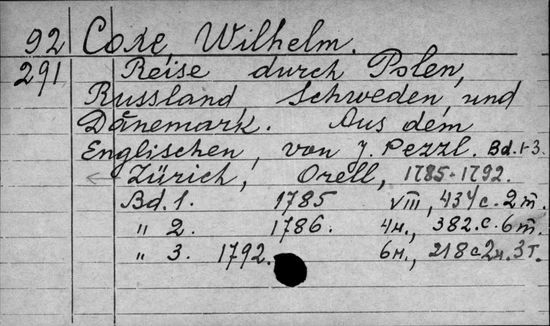 92 Coxe, Wilhelm.
291 Reise durch Polen,
Russland, Schweden, und
Dänemark. Aus dem
Englischen, von J. Pezzl. Bd. 1-3.
Zürich, Orell, 1785-1792.
Bd. 1. 1785 VIII, 434 c. 2 m.
" 2. 1786. 4 н., 382. c. 6 m.
" 3. 1792. 6 н., 218 c 2 н. 3 т.